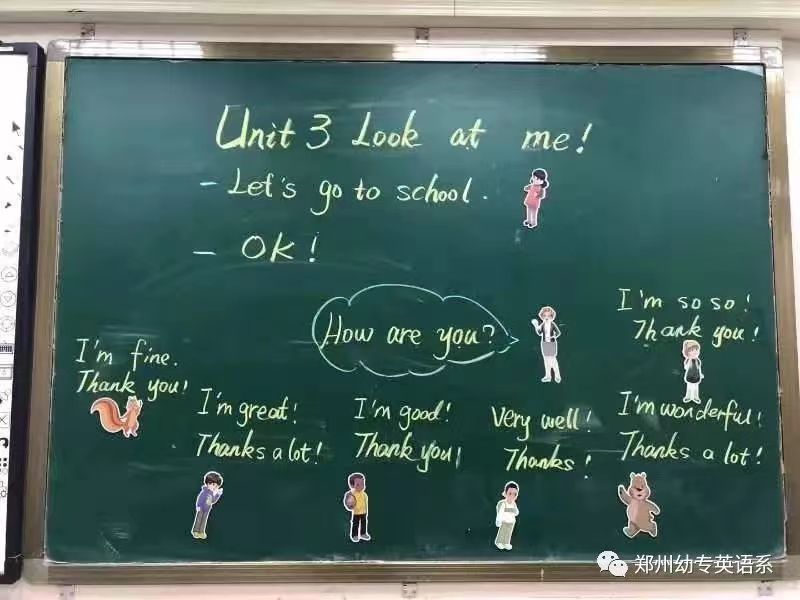 Unit 3 Look at me!
- Let's go to school.
- OK!
How are you?
I'm so so!
Thank you!
I'm fine.
Thank you!
I'm great!
Thanks a lot!
I'm good!
Thank you!
Very well!
Thanks!
I'm wonderful!
Thanks a lot!
郑州幼专英语系